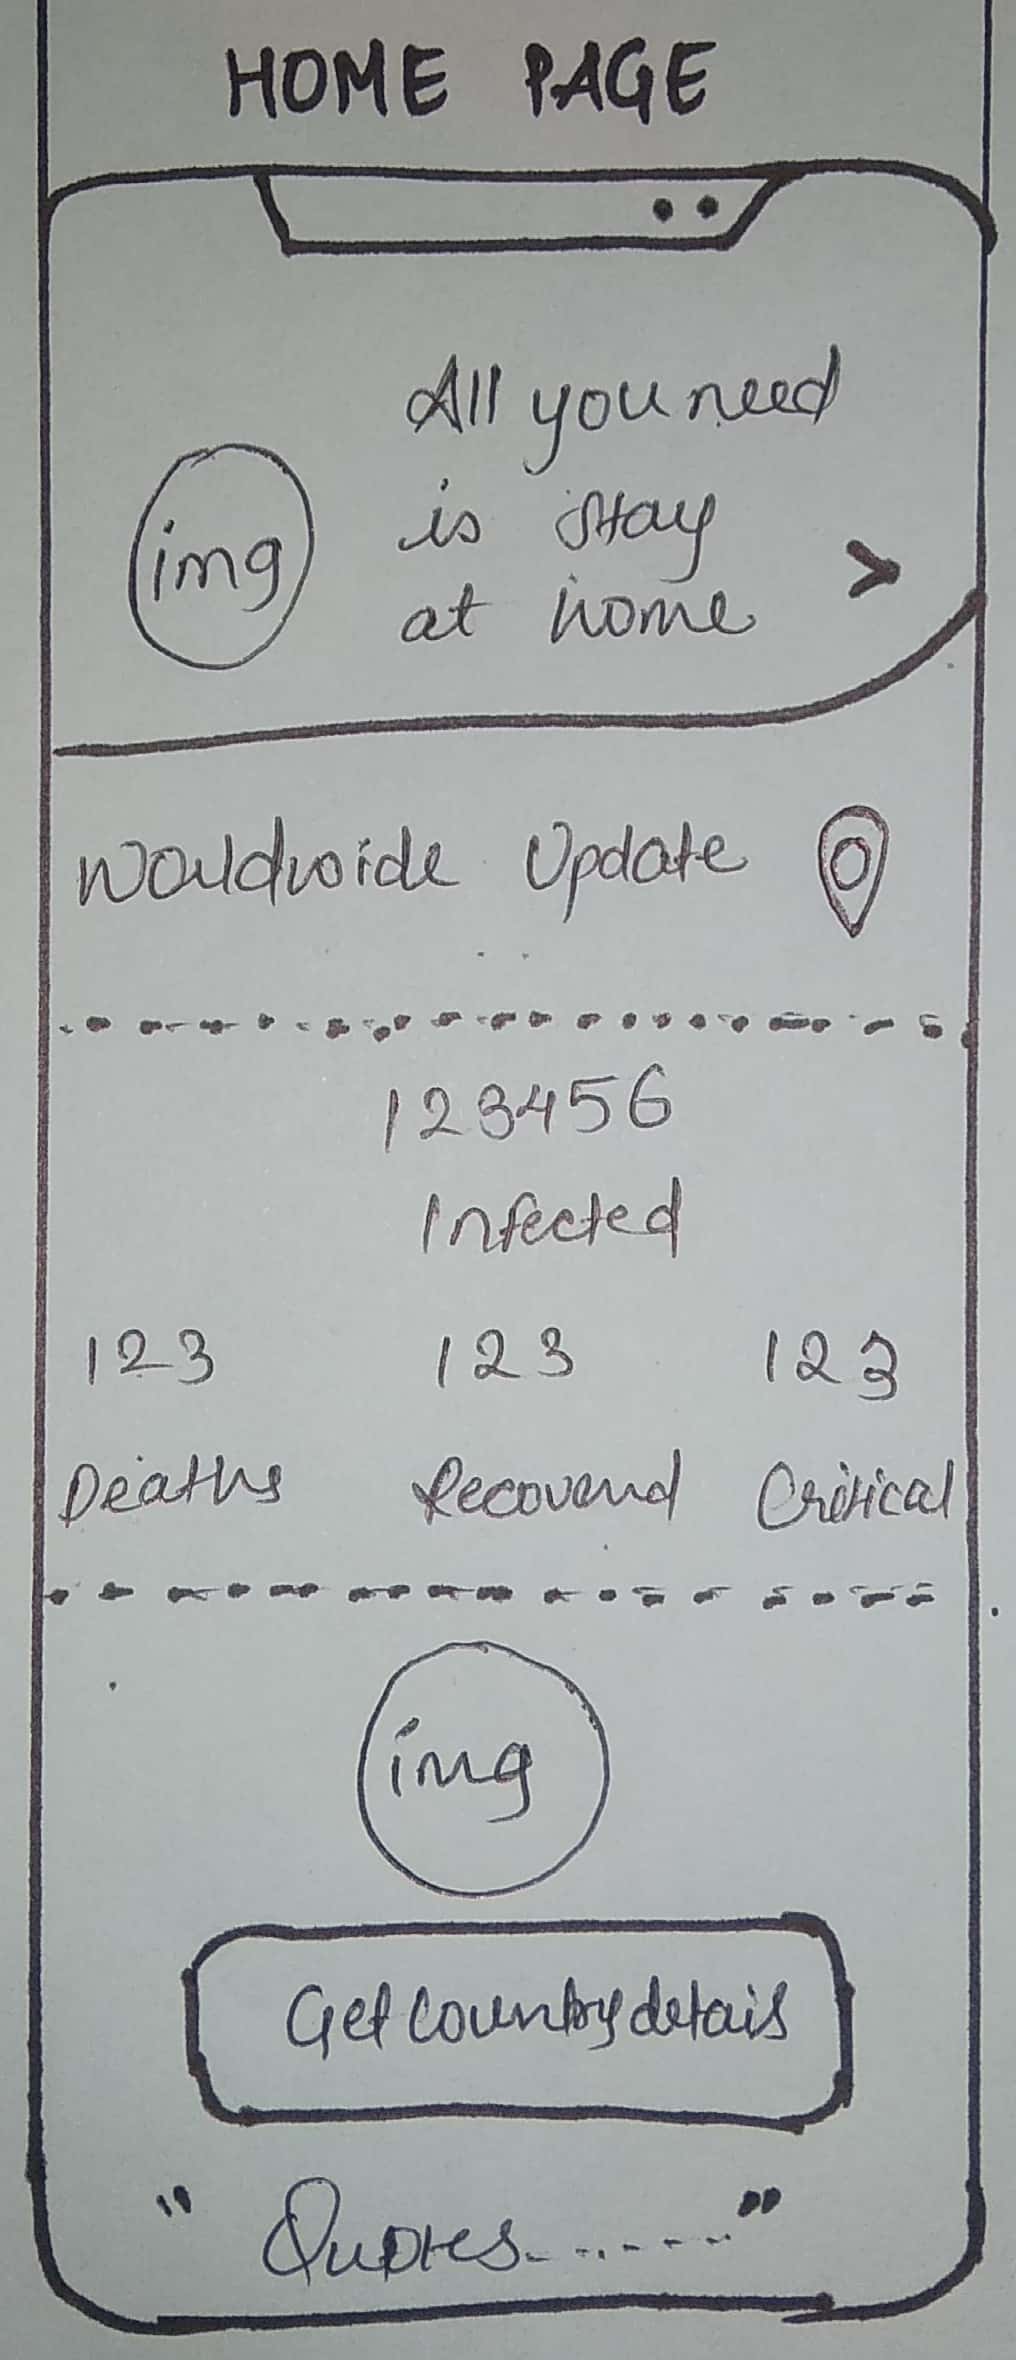 HOME PAGE
All you need
img
is stay
at home >
Worldwide Update
123456
Infected
123 123 123
Deaths Recovered Critical
img
Get Country details
"Quotes......."